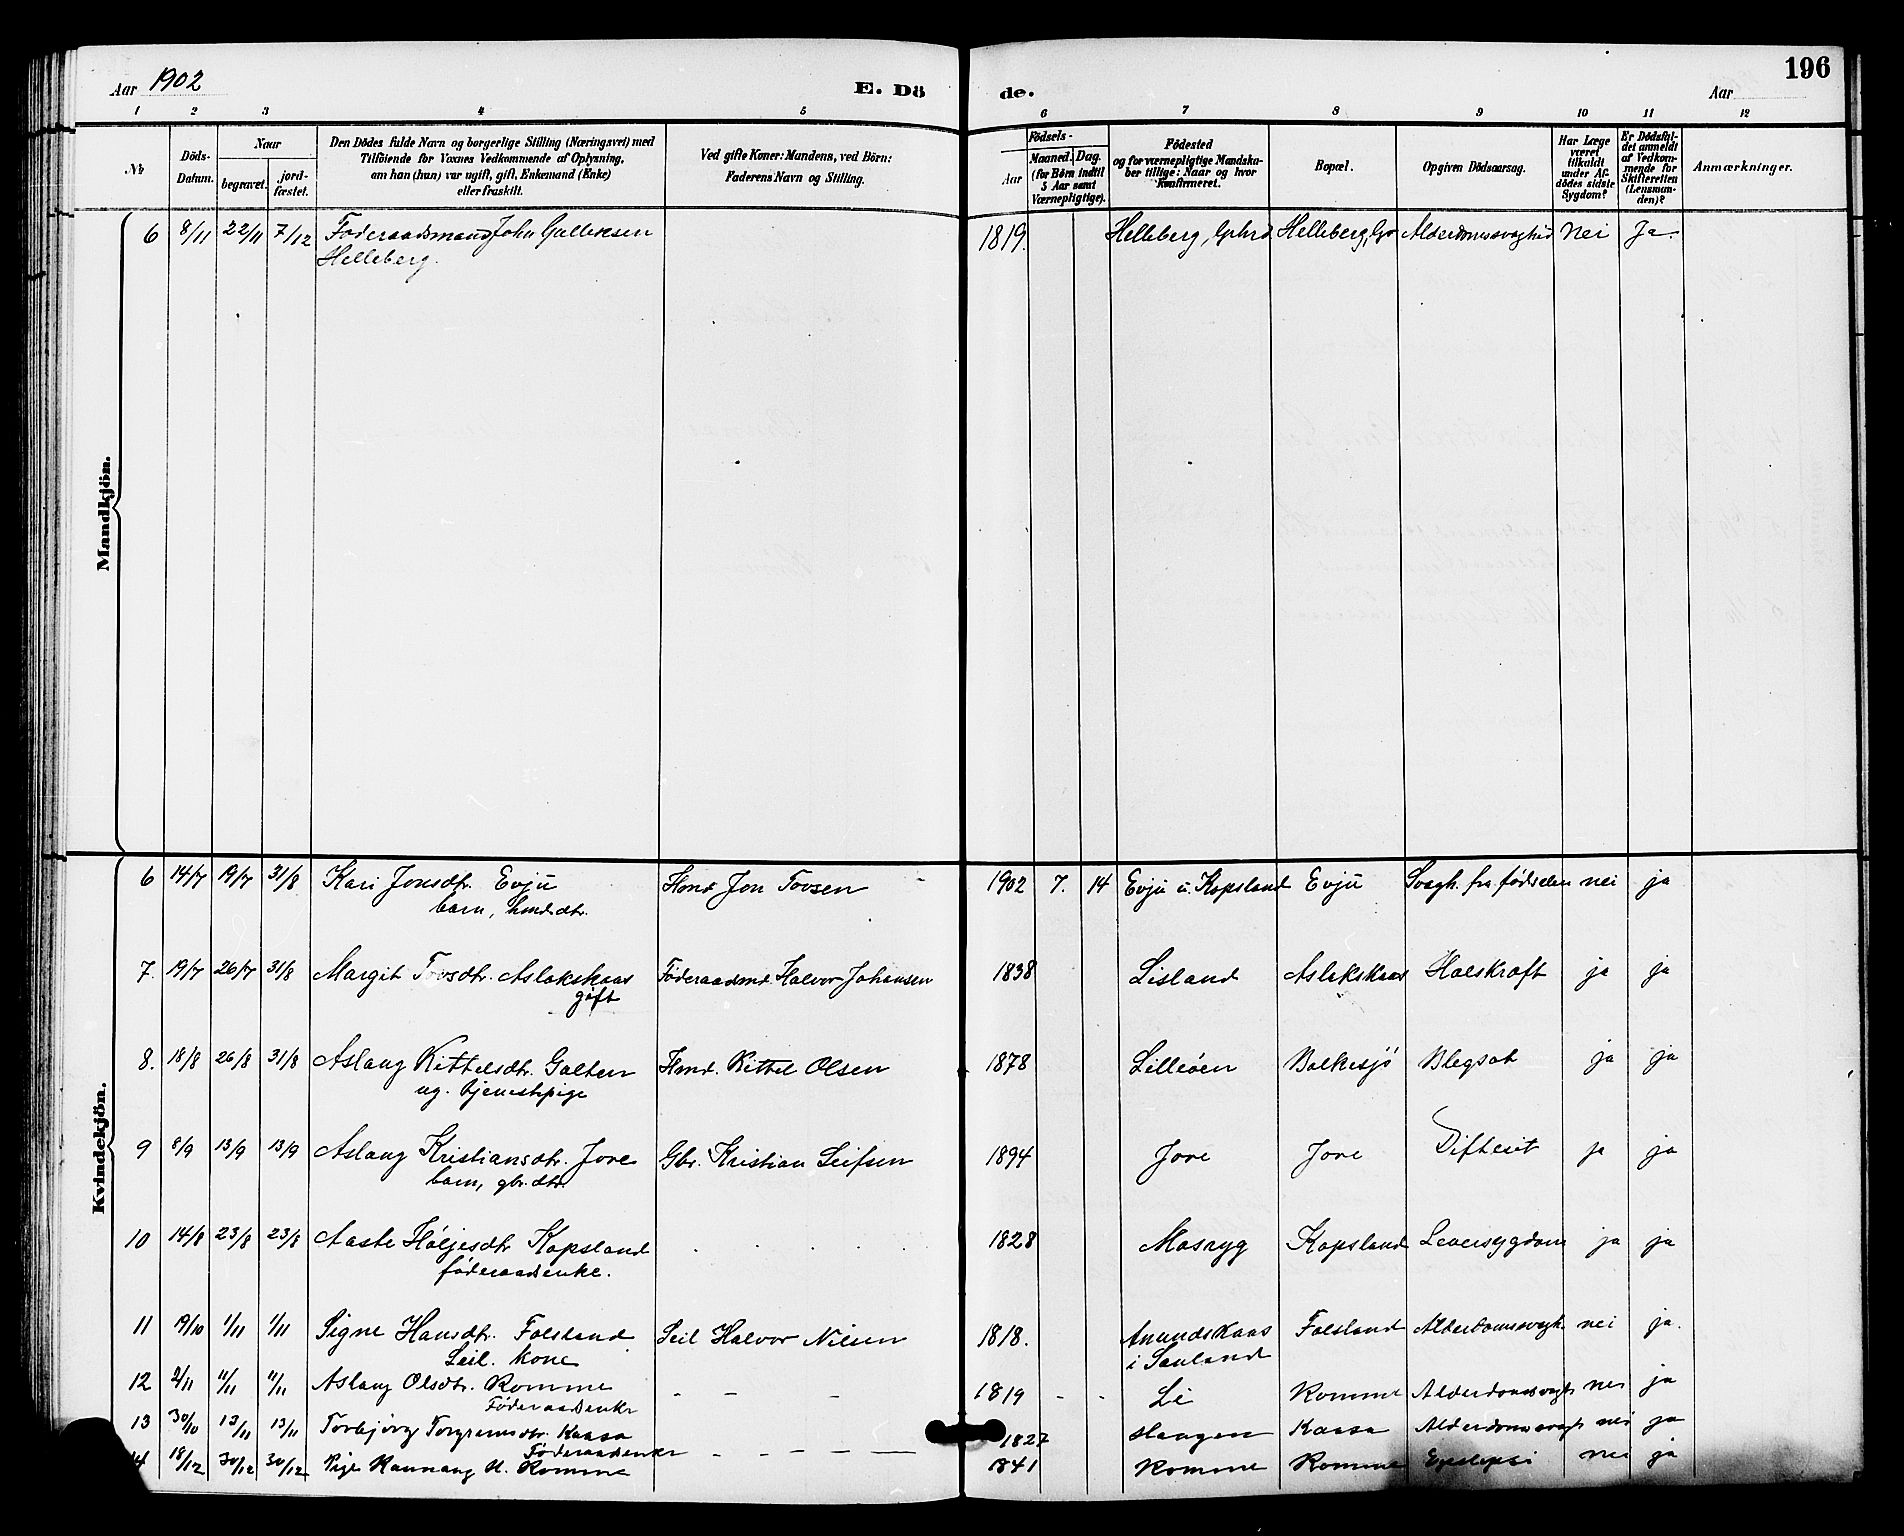 Aar 1902 E. Dö de. Aar 196
1 2 3 4 5 6 7 8 9 10 11 12
No Döds-Datum. Naar begravet. jordfæstet. Den Dödes fulde Navn og borgerlige Stilling (Næringsvei) med Tilföiende for Voxnes Vedkommende af Oplysning, om han (hun) var ugift, gift, Enkemand (Enke) eller fraskilt. Ved gifte Koner: Mandens, ved Börn: Faderens Navn og Stilling. Födsels- Aar Maaned. Dag. (for Börn indtil 5 Aar samt Værnepligtige). Födested og for værnepligtige Mandskaber tillige: Naar og hvor Konfirmeret. Bopæl. Opgiven Dödsaarsag. Har Læge været tilkaldt under Afdödes sidste Sygdom? Er Dödsfaldet anmeldt af Vedkommende for Skifteretten (Lensmanden)? Anmærkninger.
Mandkjön.
6 8/11 22/11 7/12 Föderaadsmand John Gulleksen 1819. Helleberg, Grhrd Helleberg, Gr Alderdomssvaghed Nei Ja.
Helleberg.
Kvindekjön.
6 14/7 19/7 31/8 Kari Jonsdtr. Evju Hmd Jon Tovsen 1902 7. 14 Evju u. Kopsland Evju Svagh. fra födselen nei ja
barn, hmds dtr.
7. 19/7 26/7 31/8 Margit Tovsdtr. Aslakskaas Föderaadsmd. Halvor Johansen 1838 Lisland Aslakskaas Halskræft ja ja
gift
8. 18/8 26/8 31/8 Aslaug Kittelsdtr. Galten Hmd. Kittel Olsen 1878 Lilleöen Bolkesjö Blegsot ja ja
ug. tjenestpige
9 8/9 13/9 13/9 Aslaug Kristiansdtr. Jore Gbr. Kristian Leifsen 1894 Jore Jore Difterit ja ja
barn, gbr. dtr.
10 14/8 23/8 23/8 Aaste Höljesdtr Kopsland 1828 Mosryg Kopsland Leversygdom ja ja
föderaadsenke.
11 19/10 1/11 1/11 Signe Hansdtr. Folsland Leil Halvor Nilsen 1818. Anundskaas Folsland Alderdomssvagh. nei ja.
Leil. kone i Sauland
12 2/11 11/11 11/11 Aslaug Olsdtr. Romme 1819 Li Romme Alderdomssvagh nei ja
Föderaadsenke
13 30/10 13/11 13/11 Torbjörg Torgrimsdtr. Kaasa 1827 Haugen Kaasa Alderdomssvagh nei ja
Föderaadsenke
14 18/12 30/12 30/12 Pige Rannaug H. Romme 1841 Romme Romme Epilepsi nei ja